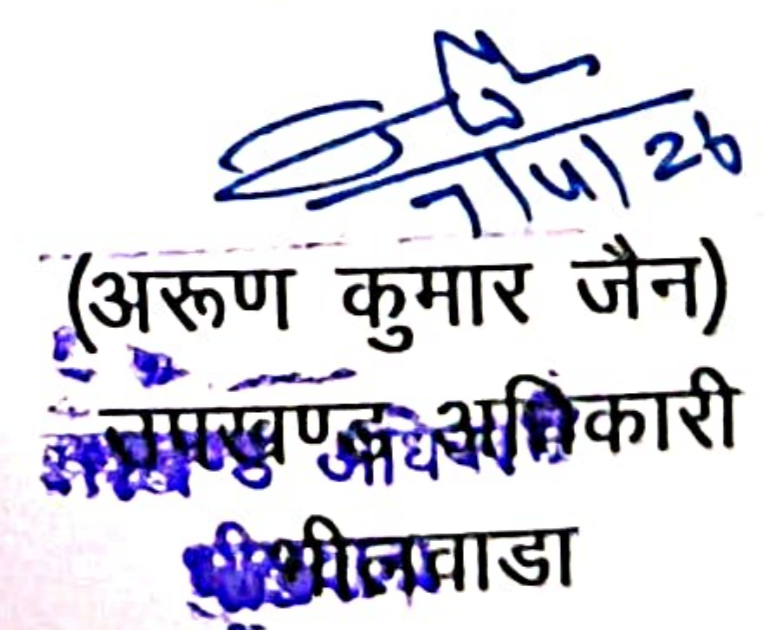 7/4/26
(अरूण कुमार जैन)
उपखण्ड अधिकारी
भीलवाडा